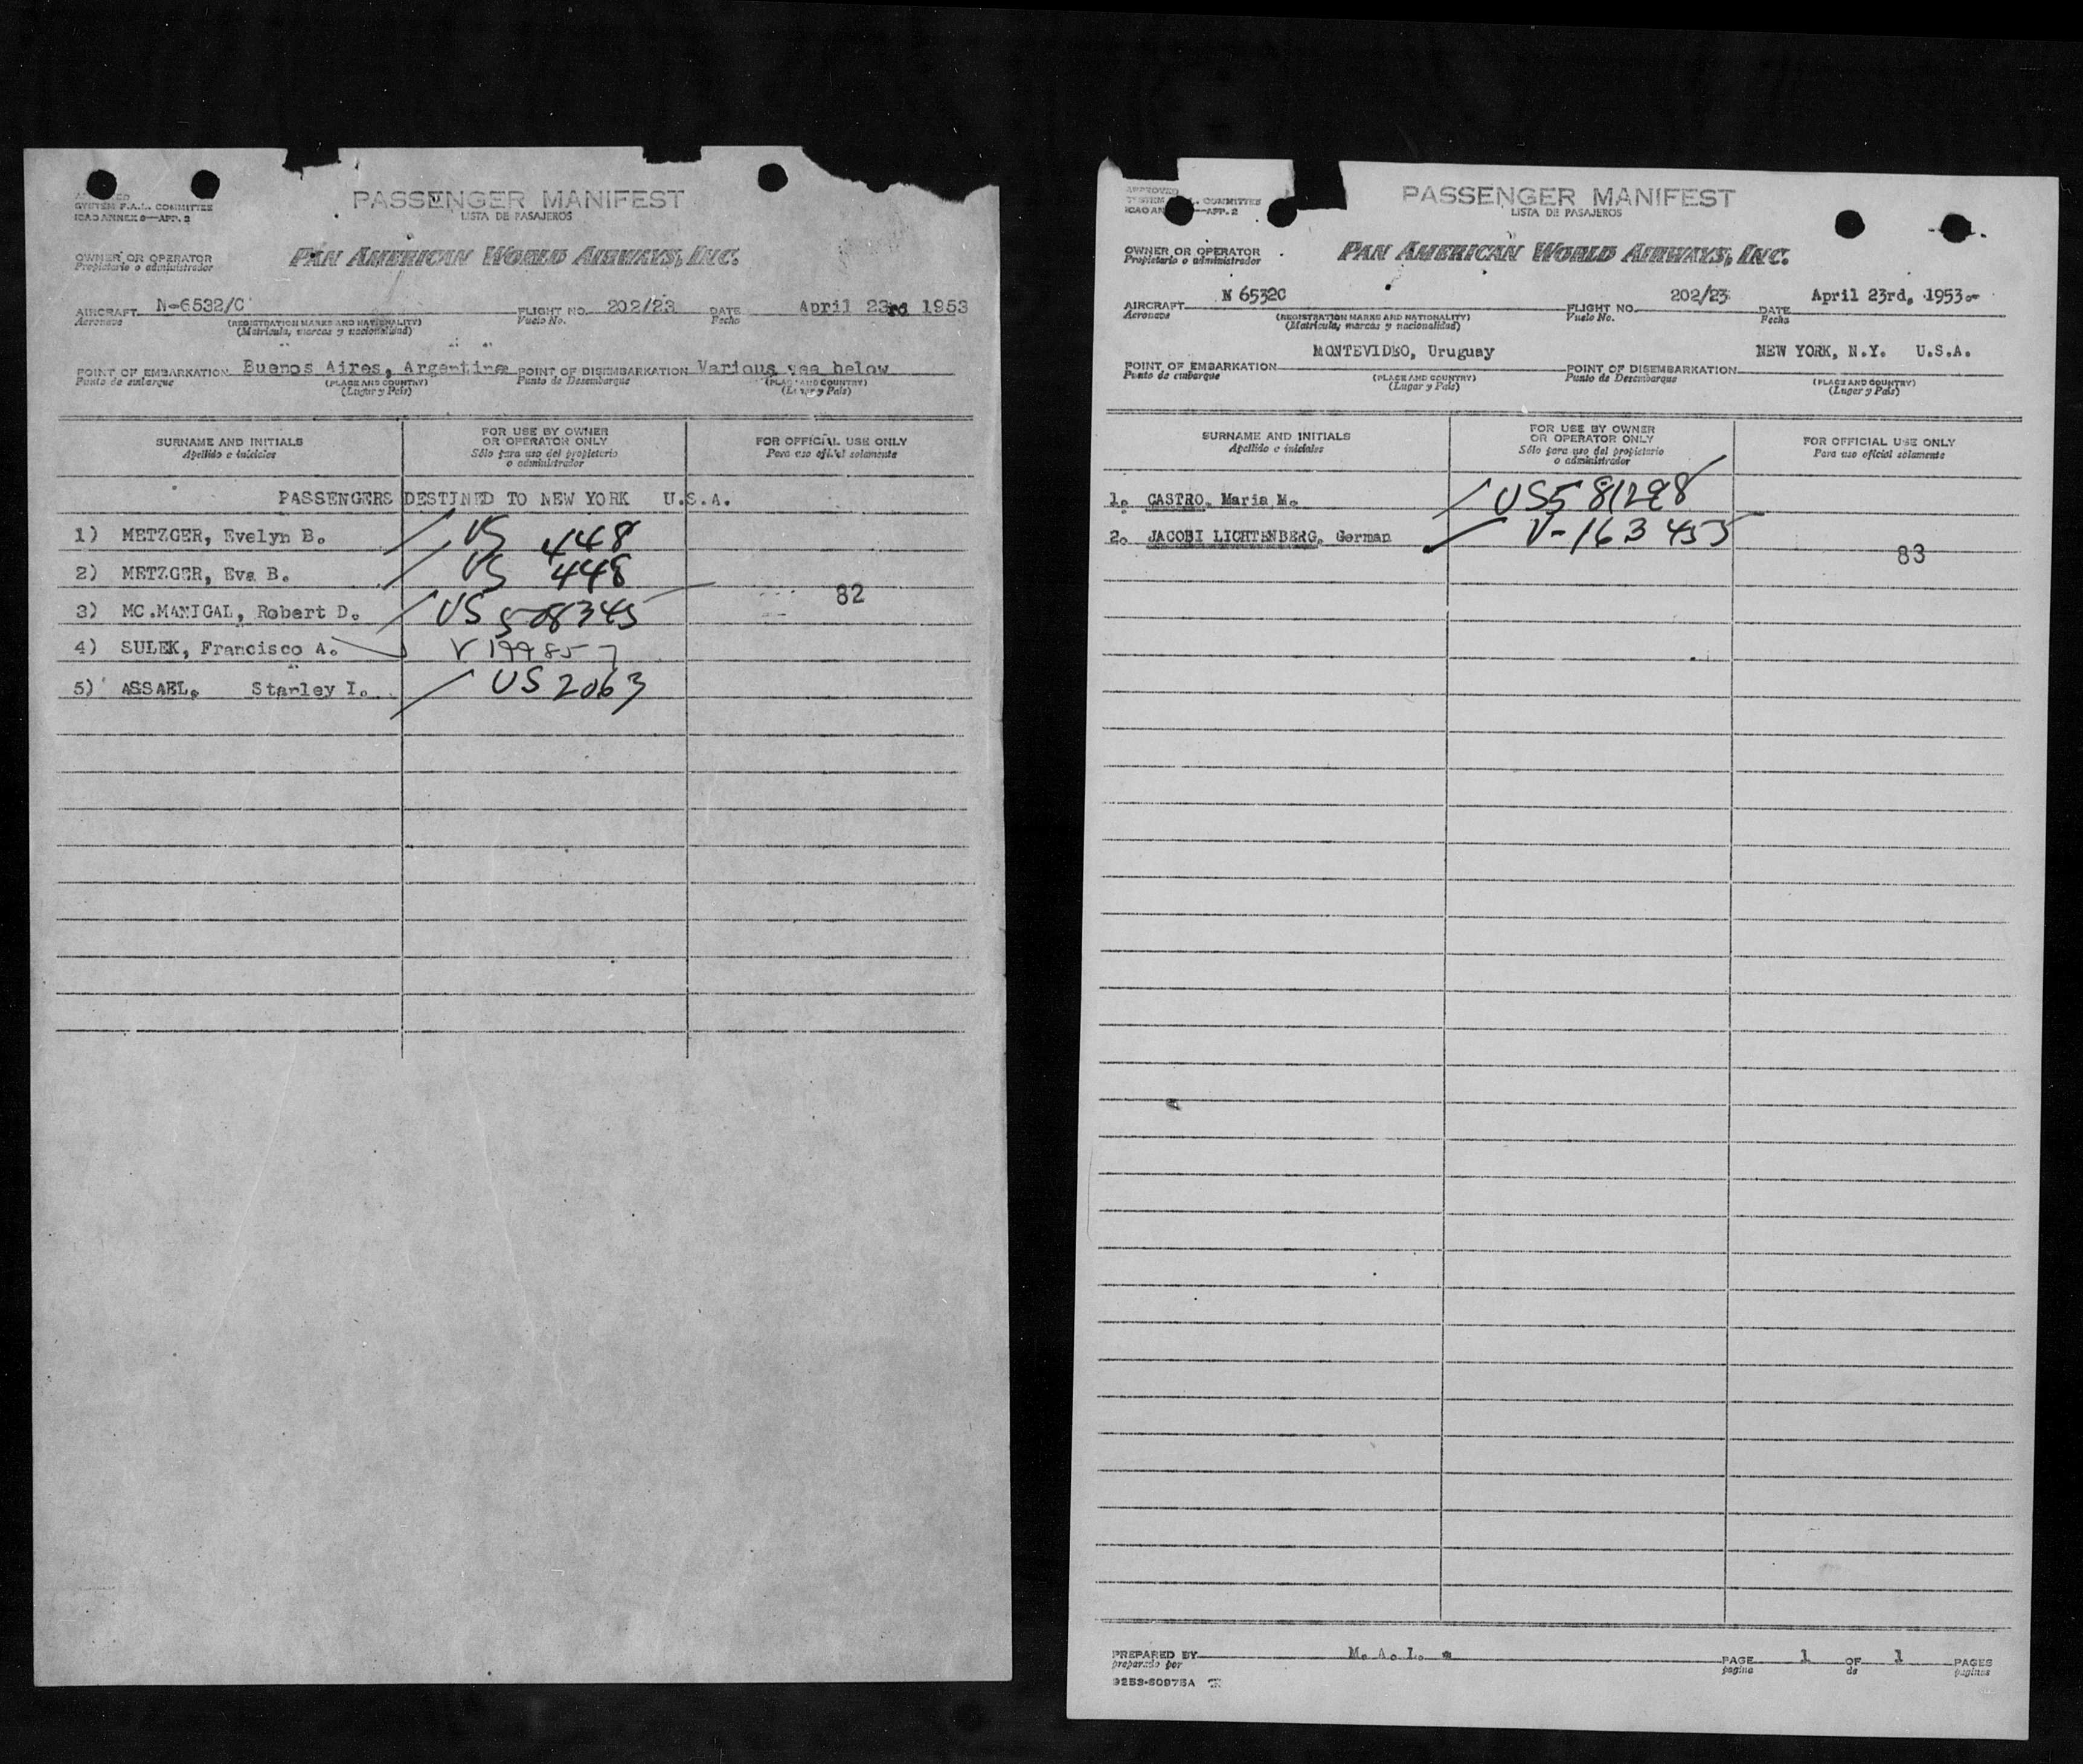 SYSTEM F.A.L. COMMITTEE
ICAO ANNEX 9—APP. 2
PASSENGER MANIFEST
LISTA DE PASAJEROS
OWNER OR OPERATOR
Propietario o administrador
PAN AMERICAN WORLD AIRWAYS, INC.
AIRCRAFT N-6532/C FLIGHT NO. 202/23 DATE April 23rd 1953
Aeronave (REGISTRATION MARKS AND NATIONALITY) Vuelo No. Fecha
(Matrícula, marcas y nacionalidad)
POINT OF EMBARKATION Buenos Aires, Argentina POINT OF DISEMBARKATION Various below
Punto de embarque (PLACE AND COUNTRY) Punto de Desembarque (PLACE AND COUNTRY)
(Lugar y País) (Lugar y País)
SURNAME AND INITIALS FOR USE BY OWNER OR OPERATOR ONLY FOR OFFICIAL USE ONLY
Apellido e iniciales Sólo para uso del propietario o administrador Para uso oficial solamente
PASSENGERS DESTINED TO NEW YORK U.S.A.
1) METZGER, Evelyn B. US 448
2) METZGER, Eva B. US 448
3) MC.MANIGAL, Robert D. US 508345 82
4) SULEK, Francisco A. V 199857
5) ASSAEL, Stanley I. US 2063
APPROVED
SYSTEM F.A.L. COMMITTEE
ICAO ANNEX 9—APP. 2
PASSENGER MANIFEST
LISTA DE PASAJEROS
OWNER OR OPERATOR
Propietario o administrador
PAN AMERICAN WORLD AIRWAYS, INC.
AIRCRAFT N 6532C FLIGHT NO. 202/23 DATE April 23rd, 1953.-
Aeronave (REGISTRATION MARKS AND NATIONALITY) Vuelo No. Fecha
(Matrícula, marcas y nacionalidad)
POINT OF EMBARKATION MONTEVIDEO, Uruguay POINT OF DISEMBARKATION NEW YORK, N.Y. U.S.A.
Punto de embarque (PLACE AND COUNTRY) Punto de Desembarque (PLACE AND COUNTRY)
(Lugar y País) (Lugar y País)
SURNAME AND INITIALS FOR USE BY OWNER OR OPERATOR ONLY FOR OFFICIAL USE ONLY
Apellido e iniciales Sólo para uso del propietario o administrador Para uso oficial solamente
1. CASTRO, Maria M. US581298
2. JACOBI LICHTENBERG, German V-163455 83
PREPARED BY M. A. I. PAGE 1 OF 1 PAGES
preparado por página de páginas
9253-50975A